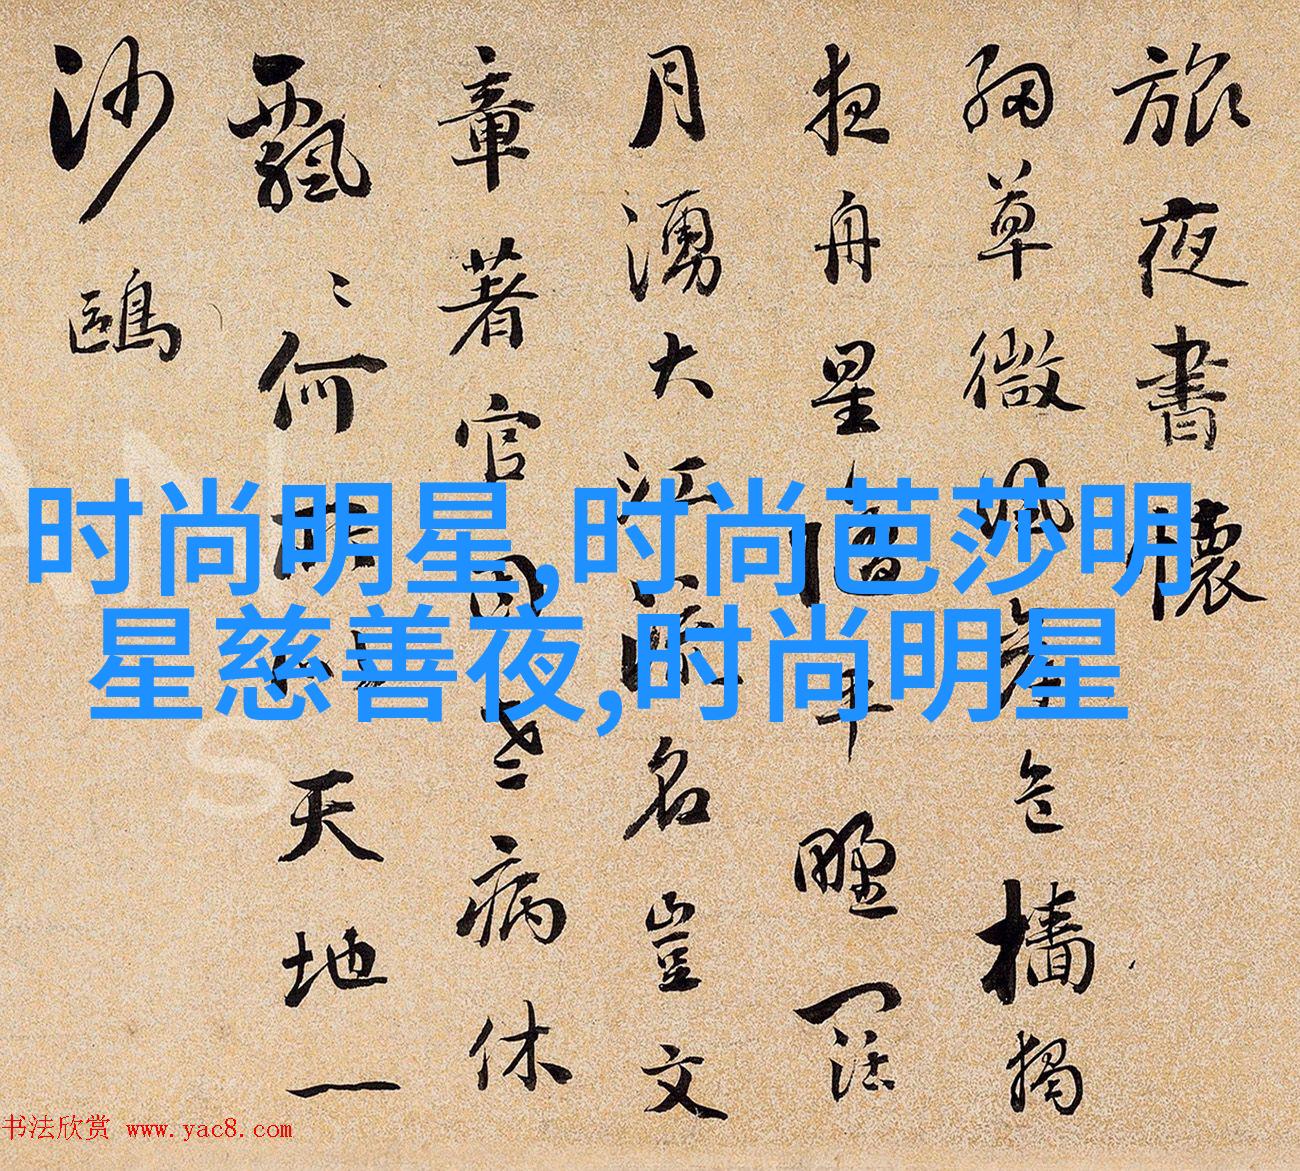 旅夜書懷
細草微風岸危檣獨
夜舟星平野闊
月湧大江流名豈文
章著官因老病休
飄〻何所似天地一
沙鷗
时尚明星,时尚芭莎明
星慈善夜,时尚明星
书法欣赏 www.yac8.com